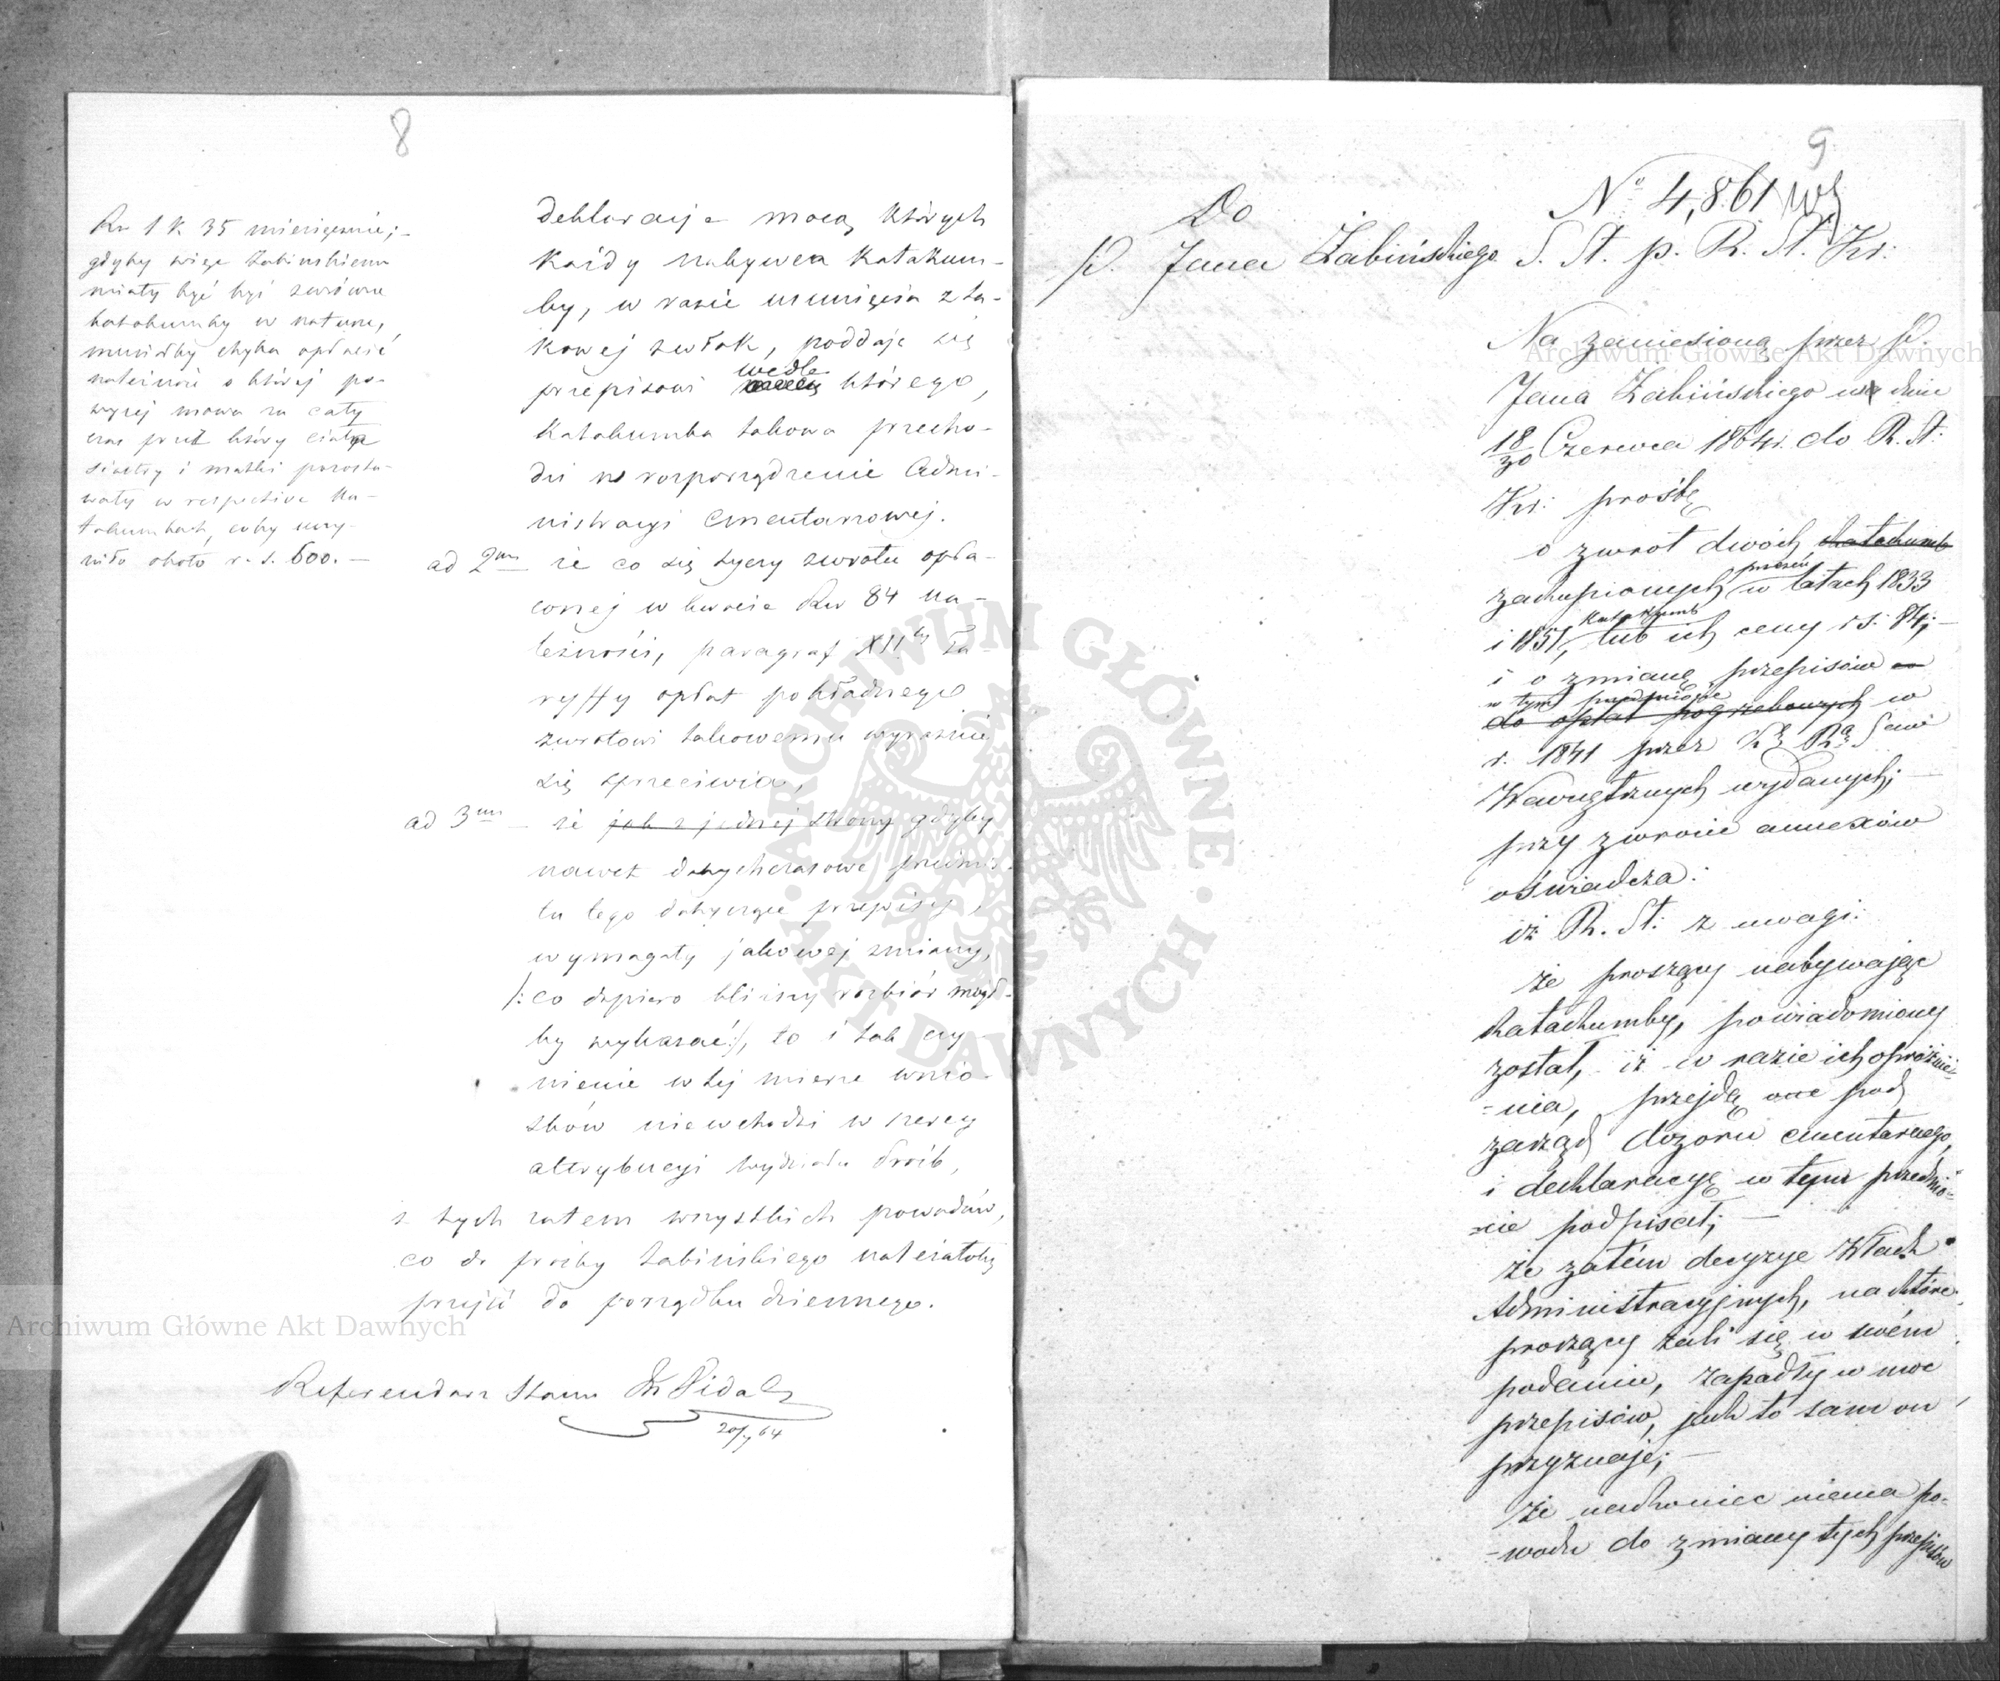 8
Rs 1 k 35 miesięcznie;
gdyby więc Żabińskiemu
miały być zwrócone
katakumby w naturze,
musiałby chyba opłacić
należność o której po-
wyżej mowa za cały
czas przez który ciała
siostry i matki pozosta-
wały w respective Ka-
takumbach, coby uczy-
niło około r. s. 600. —
deklaracje mocą których
każdy nabywca Katakum-
by, w razie usunięcia z ta-
kowej zwłok, poddaje się
przepisowi wedle którego,
Katakumba takowa przecho-
dzi w rozporządzenie Admi-
nistracyi Cmentarzowej.
ad 2um że co się tyczy zwrotu opła-
conej w kwocie Rs 84 na-
leżności, paragraf XIIty Ta-
ryffy opłat pokładnego
zwrotowi takowemu wyraźnie
się sprzeciwia,
ad 3um — że jak z jednej strony gdyby
nawet dotychczasowe przedmio-
tu tego dotyczące przepisy,
wymagały jakowej zmiany,
/: co dopiero bliższy rozbiór mógł-
by wykazać :/, to i tak czy-
nienie w tej mierze wnio-
sków niewchodzi w rzeczy
attrybucyi wydziału próśb,
z tych zatem wszystkich powodów,
co do prośby Żabińskiego należałoby
przejść do porządku dziennego.
Referendarz Stanu
9
Do
No 4,861
P. Jana Żabińskiego S. St. p. R. St. Kr:
Na zaniesioną przez P.
Jana Żabińskiego w dniu
18/30 Czerwca 1864 r. do R. St:
Kr: prośbę
o zwrot dwóch katakumb
zakupionych przezeń w latach 1833
i 1851, Katakumb lub ich ceny rs: 84;
i o zmianę przepisów
w tym przedmiocie
do opłat pogrzebowych w
r. 1841 przez K. R. Spraw
Wewnętrznych wydanych; —
przy zwrocie annexów
oświadcza:
iż R. St: z uwagi:
że proszący nabywając
katakumby, powiadomiony
został, iż w razie ich opróżnie-
-nia, przejdą one pod
zarząd dozoru cmentarnego,
i deklaracyę w tym przedmio-
-cie podpisał; —
że zatém decyzye Władz
Administracyjnych, na które
proszący żali się w swém
podaniu, zapadły w moc
przepisów, jak to sam on
przyznaje; —
że nakoniec niema po-
-wodu do zmiany tych przepisów
Archiwum Główne Akt Dawnych
Archiwum Główne Akt Dawnych
· ARCHIWUM GŁÓWNE · AKT DAWNYCH